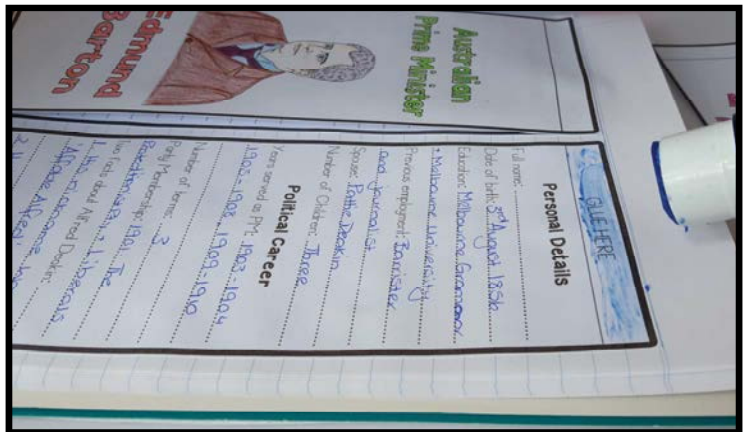 Australian
Prime Minister
Edmund
Barton
GLUE HERE
Personal Details
Full name:
Date of birth: 3rd August 1856
Education: Melbourne Grammar
+ Melbourne University
Previous employment: Barrister
and journalist
Spouse: Pattie Deakin
Number of Children: Three
Political Career
Years served as PM: 1903-1904
1905-1908, 1909-1910
Number of terms: 3
Party Membership: The
Protectionist, Liberals
Two facts about Alfred Deakin:
1. His
Alfred
2.